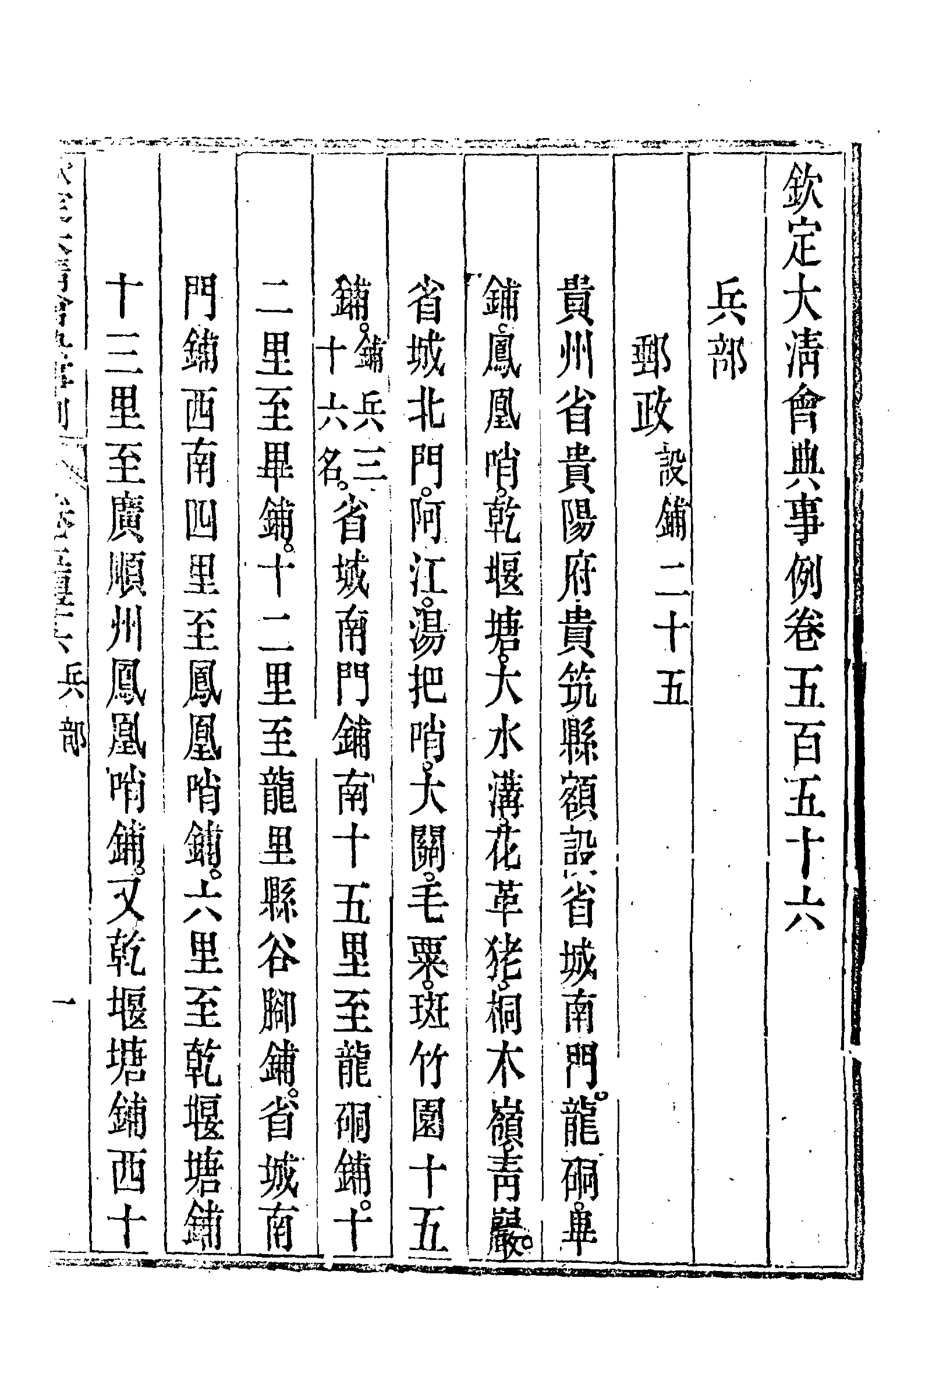 欽定大清會典事例卷五百五十六
兵部
郵政 設鋪二十五
貴州省貴陽府貴筑縣額設省城南門。龍硐。畢
鋪。鳳凰哨。乾堰塘。大水溝。花革狫。桐木嶺。靑巖。
省城北門。阿江。湯把哨。大關。毛栗。斑竹園十五
鋪。鋪兵三十六名。省城南門鋪南十五里至龍硐鋪。十
二里至畢鋪。十二里至龍里縣谷腳鋪。省城南
門鋪西南四里至鳳凰哨鋪。六里至乾堰塘鋪
十三里至廣順州鳳凰哨鋪。又乾堰塘鋪西十
欽定大清會典事例 卷五百五十六 兵部 一